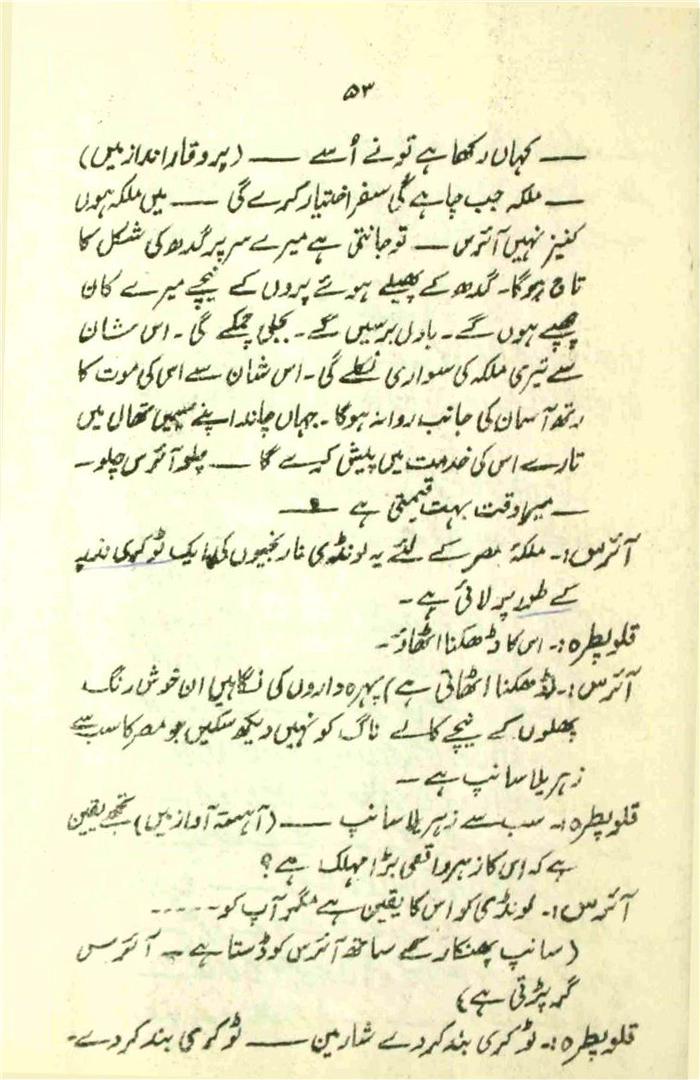 ۵۳
— کہاں رکھا ہے تو نے اُسے — (پر وقار انداز میں)
— ملکہ جب چاہے گی سفر اختیار کرے گی — میں ملکہ ہوں
کنیز نہیں آئرس — تو جانتی ہے میرے سر پر گدھ کی شکل کا
تاج ہوگا۔ گدھ کے پھیلے ہوئے پروں کے نیچے میرے کان
چھپے ہوں گے۔ بادل برسیں گے۔ بجلی چمکے گی۔ اس شان
سے تیری ملکہ کی سواری نکلے گی۔ اس شان سے اس کی موت کا
رتھ آسمان کی جانب روانہ ہوگا۔ جہاں چاند اپنے سیمیں تھال میں
تارے اس کی خدمت میں پیش کرے گا — چلو آئرس چلو۔
— میرا وقت بہت قیمتی ہے —
آئرس:۔ ملکۂ مصر کے لئے یہ لونڈی نارنجیوں کی ایک ٹوکری نذر
کے طور پر لائی ہے۔
قلوپطرہ:۔ اس کا ڈھکنا اٹھاؤ۔
آئرس:۔ (ڈھکنا اٹھاتی ہے) پہرہ داروں کی نگاہیں ان خوش رنگ
پھلوں کے نیچے کالے ناگ کو نہیں دیکھ سکیں جو مصر کا سب سے
زہریلا سانپ ہے۔
قلوپطرہ:۔ سب سے زہریلا سانپ — (آہستہ آواز میں) تجھے یقین
ہے کہ اس کا زہر واقعی بڑا مہلک ہے؟
آئرس:۔ لونڈی کو اس کا یقین ہے مگر آپ کو۔۔۔۔۔
(سانپ پھنکار کے ساتھ آئرس کو ڈستا ہے۔ آئرس
گر پڑتی ہے)
قلوپطرہ:۔ ٹوکری بند کر دے شارمین — ٹوکری بند کر دے۔